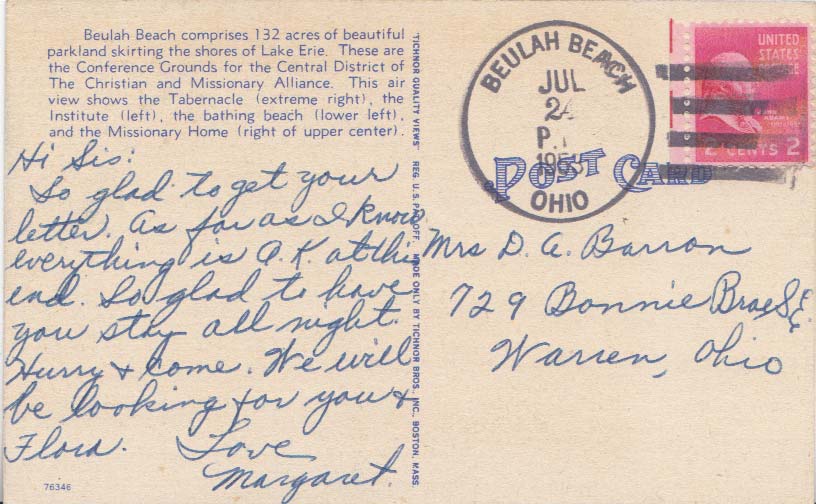 Beulah Beach comprises 132 acres of beautiful
parkland skirting the shores of Lake Erie. These are
the Conference Grounds for the Central District of
The Christian and Missionary Alliance. This air
view shows the Tabernacle (extreme right), the
Institute (left), the bathing beach (lower left),
and the Missionary Home (right of upper center).
Hi Sis:
So glad to get your
letter. As far as I know
everything is O.K. at this
end. So glad to have
you stay all night.
Hurry & come. We will
be looking for you &
Flora. Love
Margaret.
76346
"TICHNOR QUALITY VIEWS" REG. U. S. PAT. OFF. MADE ONLY BY TICHNOR BROS., INC., BOSTON, MASS.
BEULAH BEACH
JUL
24
P.
OHIO
POST CARD
UNITED
STATES
2 CENTS 2
Mrs D. A. Barron
729 Bonnie Brae S.E.
Warren, Ohio